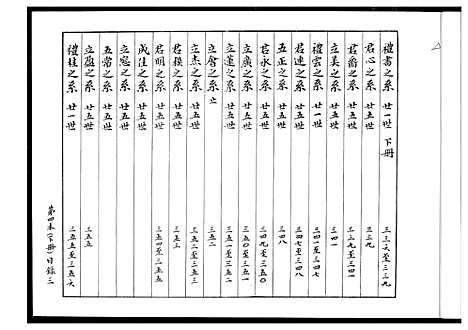 禮書之系 廿一世 下冊 三三六至三三九
君心之系 廿五世 三三九
君喬之系 廿五世 三三九至三四一
立美之系 廿五世 三四一
禮雲之系 廿一世 三四一至三四七
君連之系 廿五世 三四七至三四八
五正之系 廿五世 三四八
君永之系 廿五世 三四九至三五０
立廣之系 廿五世 三五０至三五一
立蓮之系 廿五世 三五一至三五二
立會之系 止 三五二
立杰之系 廿五世 三五二至三五三
君模之系 廿五世 三五三
君明之系 廿五世 三五四至三五五
成佳之系 廿五世
立恩之系 廿五世
五常之系 廿五世
立雄之系 廿五世 三五五
禮桂之系 廿一世 三五五至三五六
第四本(下冊)目錄三